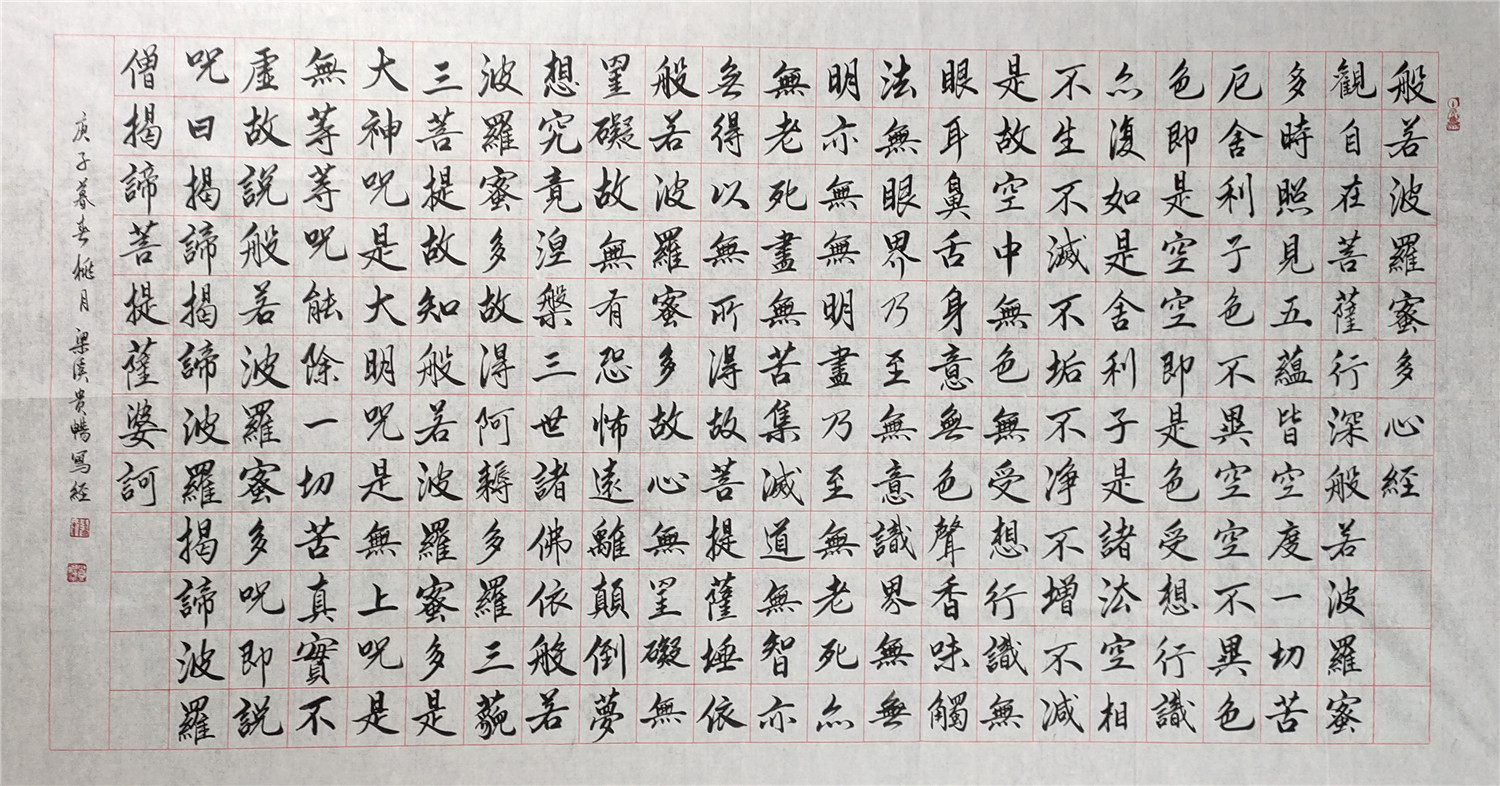 般若波羅蜜多心経
觀自在菩薩行深般若波羅蜜
多時照見五蘊皆空度一切苦
厄舍利子色不異空空不異色
色即是空空即是色受想行識
亦復如是舍利子是諸法空相
不生不滅不垢不净不增不减
是故空中無色無受想行識無
眼耳鼻舌身意無色聲香味觸
法無眼界乃至無意識界無無
明亦無無明盡乃至無老死亦
無老死盡無苦集滅道無智亦
無得以無所得故菩提薩埵依
般若波羅蜜多故心無罣礙無
罣礙故無有恐怖遠離顛倒夢
想究竟涅槃三世諸佛依般若
波羅蜜多故得阿耨多羅三藐
三菩提故知般若波羅蜜多是
大神咒是大明咒是無上咒是
無等等咒能除一切苦真實不
虛故說般若波羅蜜多咒即說
咒曰揭諦揭諦波羅揭諦波羅
僧揭諦菩提薩婆訶
庚子暮春桃月梁溪貴暢寫経